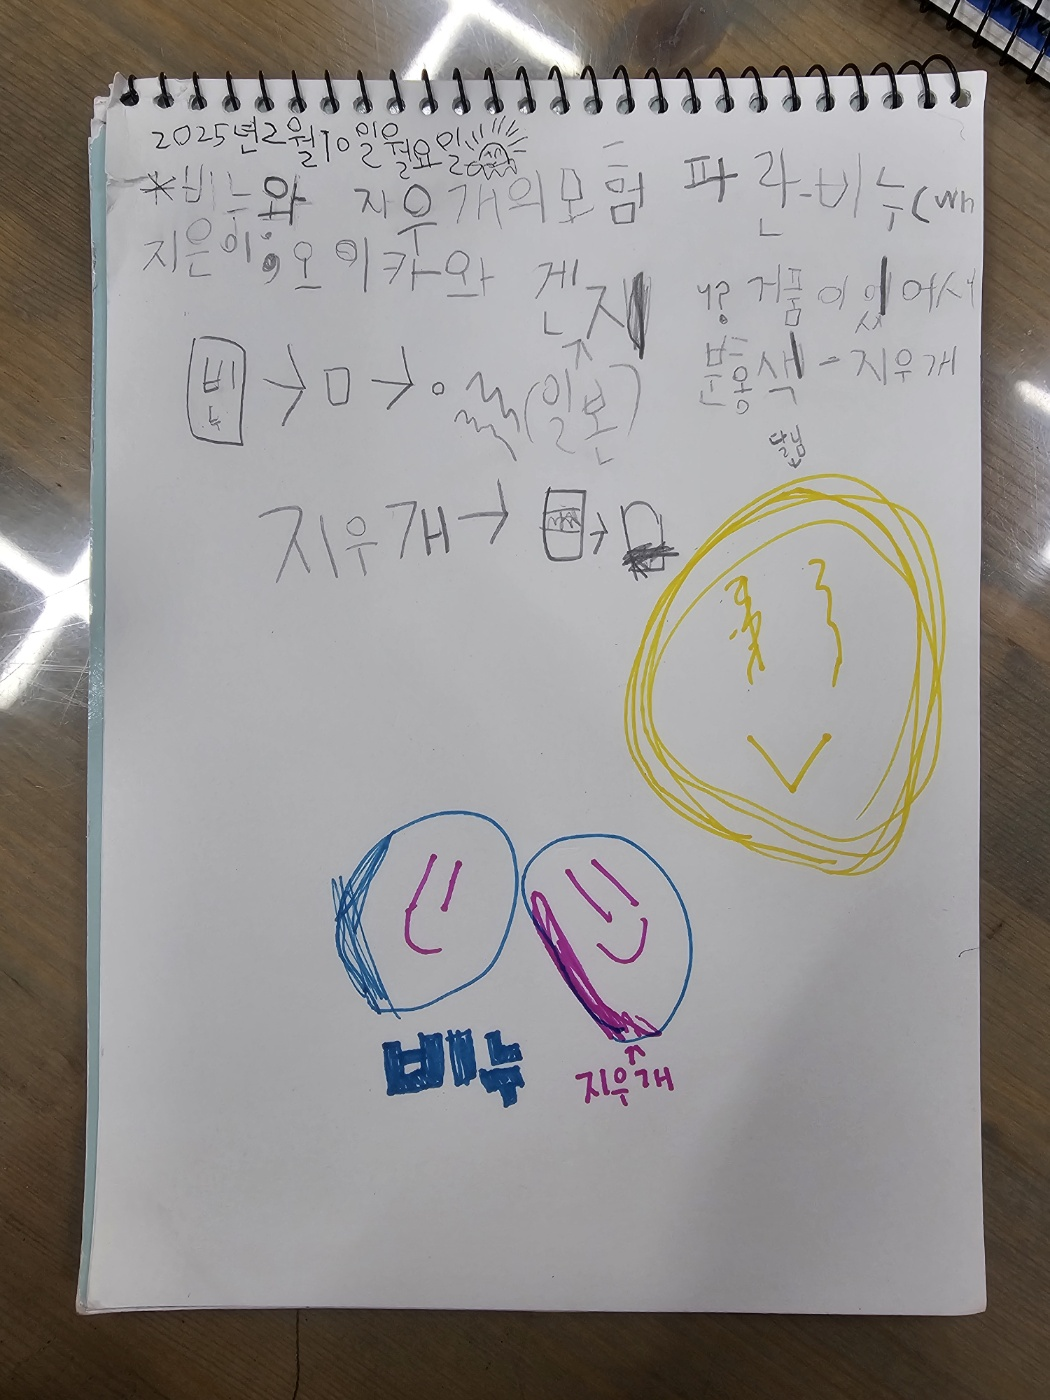 2025년2월10일월요일
*비누와 지우개의모험
지은이;오이카와 겐지
비누→□→·
(일본)
지우개→ →
파란-비누(wh
y? 거품이있어서
분홍색-지우개
달님
↓
비누
↑
지우개